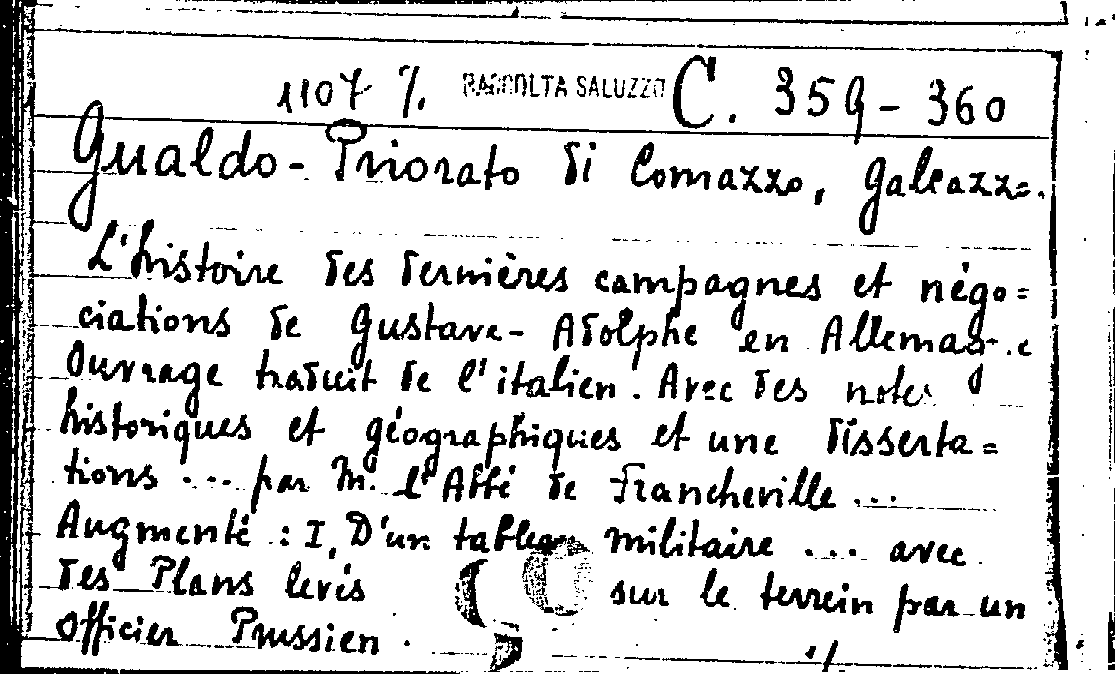 1107 %. RACCOLTA SALUZZO C. 359-360
Gualdo-Priorato di Comazzo, Galeazzo.
L'histoire des dernières campagnes et négo=
ciations de Gustave-Adolphe en Allemagne
Ouvrage traduit de l'italien. Avec des notes
historiques et géographiques et une disserta=
tions ... par M. l'Abbé de Francheville ...
Augmenté : I, D'un tableau militaire ... avec
des Plans levés sur le terrein par un
Officier Prussien.
./